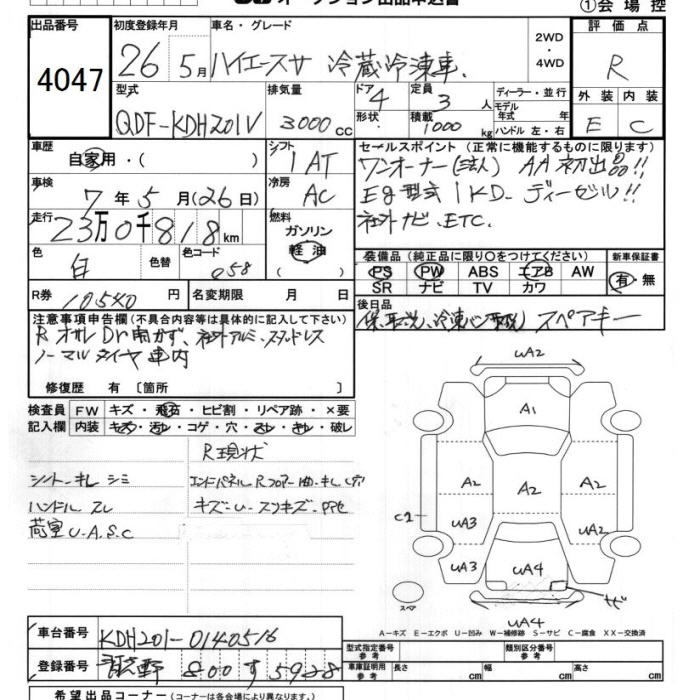 オークション出品申込書
①会場控
出品番号
4047
初度登録年月
26 5月
車名・グレード
ハイエースV 冷蔵冷凍車
2WD
・
4WD
評価点
R
外装 内装
E C
型式
QDF-KDH201V
排気量
3000cc
ドア
4
形状
定員
3人
積載
1000kg
ディーラー・並行
モデル
年式 年
ハンドル 左・右
車歴
自家用・( )
シフト
IAT
車検
7年5月(26日)
冷房
AC
走行
23万0千818km
燃料
ガソリン
軽油
( )
色
白
色替
色コード
058
R券
10540円
名変期限 月 日
セールスポイント(正常に機能するものに限ります)
ワンオーナー(法人) AA初出品!!
Eg型式1KD-ディーゼル!!
社外ナビ、ETC.
装備品(純正品に限り○をつけてください)
PS PW ABS エアB AW
SR ナビ TV カワ
新車保証書
有・無
後日品
スペアキー
注意事項申告欄(不具合内容等は具体的に記入して下さい)
社外アルミ、スタッドレス
ノーマルタイヤ車内
修復歴 有 〔箇所 〕
検査員
記入欄
FW キズ・飛石・ヒビ割・リペア跡・×要
内装 キズ・汚レ・コゲ・穴・スレ・キレ・破レ
R現状
シートキレ シミ
ハンドル スレ
キズ・U・スリキズ・
荷室U.A.S.C
UA2
A1
A2
A2
A2
UA3
UA2
UA3
UA4
C2
サビ
スペア
UA4
A-キズ E-エクボ U-凹み W-補修跡 S-サビ C-腐食 XX-交換済
車台番号
KDH201-0140516
登録番号
800す5928
型式指定番号
参考
類別区分番号
参考
車庫証明用
参考
長さ cm 幅 cm 高さ cm
希望出品コーナー(コーナーは各会場により異なります)